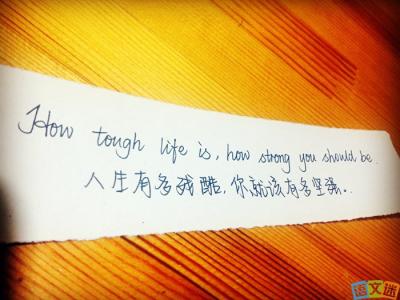 How tough life is, how strong you should be.
人生有多残酷，你就该有多坚强..
语文迷